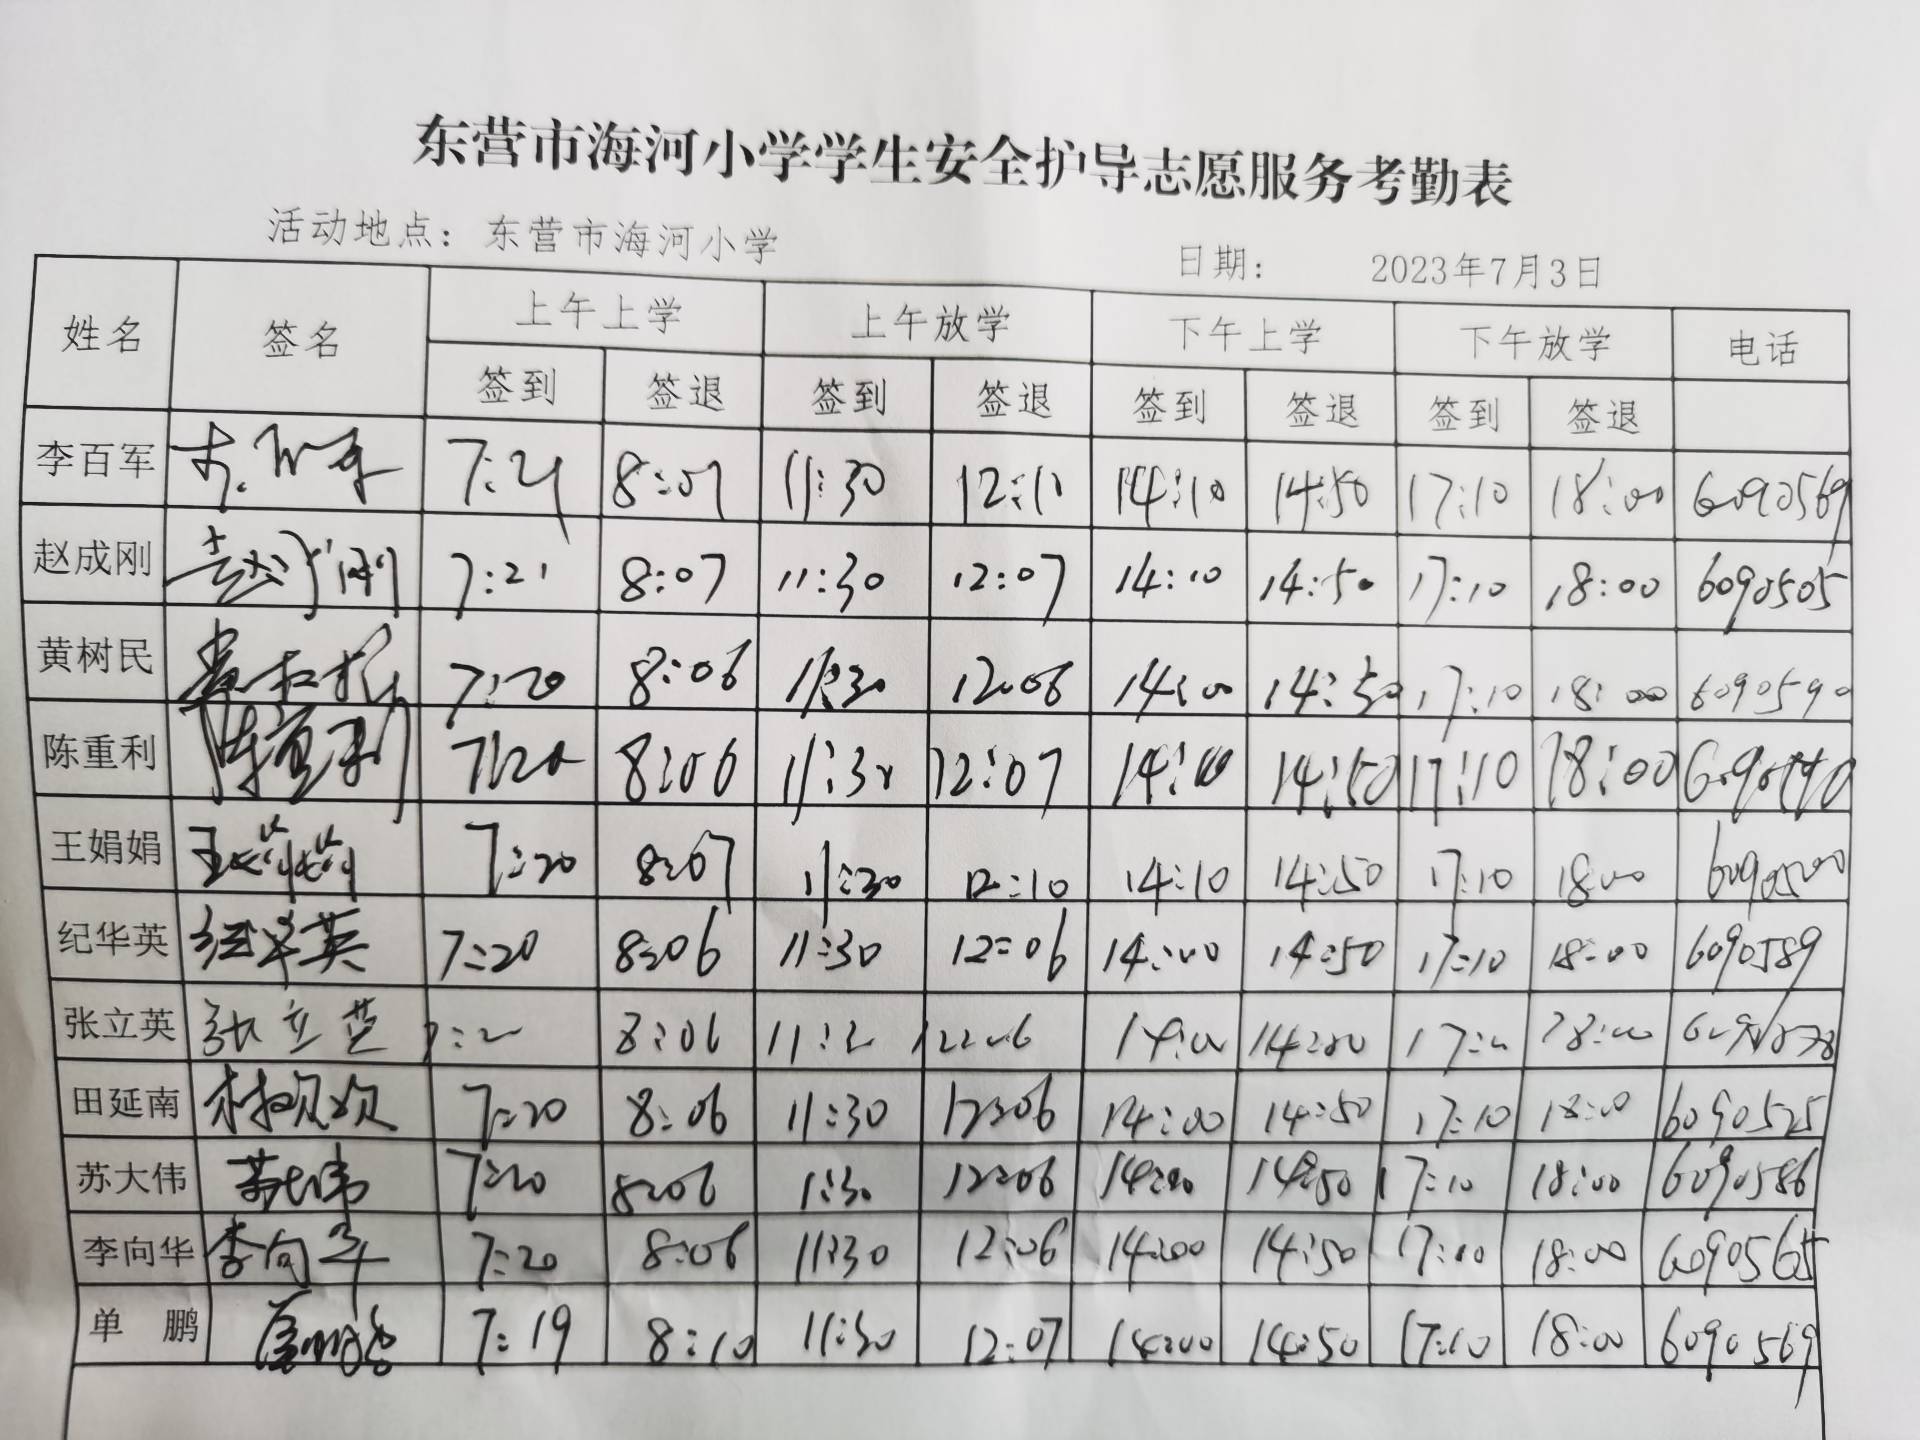 东营市海河小学学生安全护导志愿服务考勤表
活动地点：东营市海河小学 日期： 2023年7月3日
姓名 签名 上午上学 上午放学 下午上学 下午放学 电话
签到 签退 签到 签退 签到 签退 签到 签退
李百军 7:21 8:07 11:30 12:11 14:10 14:50 17:10 18:00 6090569
赵成刚 7:21 8:07 11:30 12:07 14:10 14:50 17:10 18:00 6090505
黄树民 7:20 8:06 11:30 12:06 14:00 14:50 17:10 18:00 6090590
陈重利 陈重利 7:20 8:06 11:30 12:07 14:10 14:50 17:10 18:00
王娟娟 王娟娟 7:20 8:07 11:30 12:10 14:10 14:50 17:10 18:00 6090500
纪华英 纪华英 7:20 8:06 11:30 12:06 14:00 14:50 17:10 18:00 6090589
张立英 张立英 8:06 12:06 14:00 18:00
田延南 7:20 8:06 11:30 12:06 14:00 14:50 17:10 18:00 6090525
苏大伟 苏大伟 7:20 8:06 11:30 12:06 14:00 14:50 17:10 18:00 6090586
李向华 李向华 7:20 8:06 11:30 12:06 14:00 14:50 17:10 18:00 6090565
单 鹏 7:19 8:10 11:30 12:07 14:00 14:50 17:10 18:00 6090569